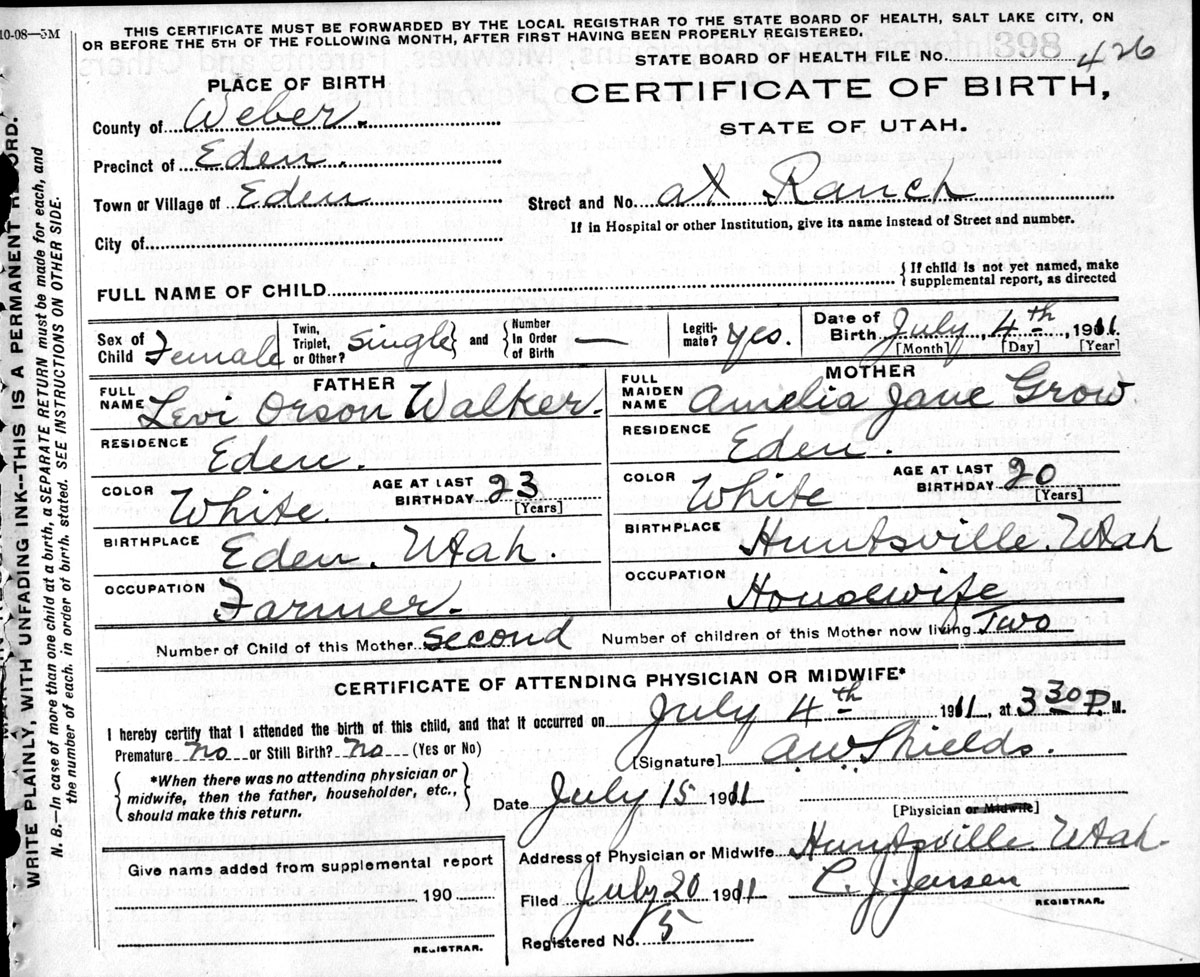 10-08—5M
THIS CERTIFICATE MUST BE FORWARDED BY THE LOCAL REGISTRAR TO THE STATE BOARD OF HEALTH, SALT LAKE CITY, ON
OR BEFORE THE 5TH OF THE FOLLOWING MONTH, AFTER FIRST HAVING BEEN PROPERLY REGISTERED.
STATE BOARD OF HEALTH FILE No. 426
398
PLACE OF BIRTH
CERTIFICATE OF BIRTH,
STATE OF UTAH.
County of Weber.
Precinct of Eden.
Town or Village of Eden
Street and No. at Ranch
If in Hospital or other Institution, give its name instead of Street and number.
City of
FULL NAME OF CHILD
{ If child is not yet named, make
supplemental report, as directed
Sex of Child Female
Twin, Triplet, or Other? Single } and { Number In Order of Birth —
Legiti-mate? yes.
Date of Birth July 4th, 1911.
[Month] [Day] [Year]
FATHER
FULL NAME Levi Orson Walker.
RESIDENCE Eden.
COLOR White. AGE AT LAST BIRTHDAY 23 [Years]
BIRTHPLACE Eden. Utah.
OCCUPATION Farmer.
MOTHER
FULL MAIDEN NAME Amelia Jane Grow
RESIDENCE Eden.
COLOR White AGE AT LAST BIRTHDAY 20 [Years]
BIRTHPLACE Huntsville. Utah
OCCUPATION Housewife
Number of Child of this Mother Second Number of children of this Mother now living Two
CERTIFICATE OF ATTENDING PHYSICIAN OR MIDWIFE*
I hereby certify that I attended the birth of this child, and that it occurred on July 4th 1911, at 3 30 P. M.
Premature no or Still Birth? no (Yes or No)
[Signature] A W Shields.
{ *When there was no attending physician or
midwife, then the father, householder, etc.,
should make this return. }
Date July 15 1911
[Physician or Midwife]
Address of Physician or Midwife Huntsville Utah.
Give name added from supplemental report
190
REGISTRAR.
Filed July 20 1911 C. J. Jensen
REGISTRAR.
Registered No. 15
WRITE PLAINLY, WITH UNFADING INK--THIS IS A PERMANENT RECORD.
N. B.—In case of more than one child at a birth, a SEPARATE RETURN must be made for each, and
the number of each, in order of birth, stated. SEE INSTRUCTIONS ON OTHER SIDE.